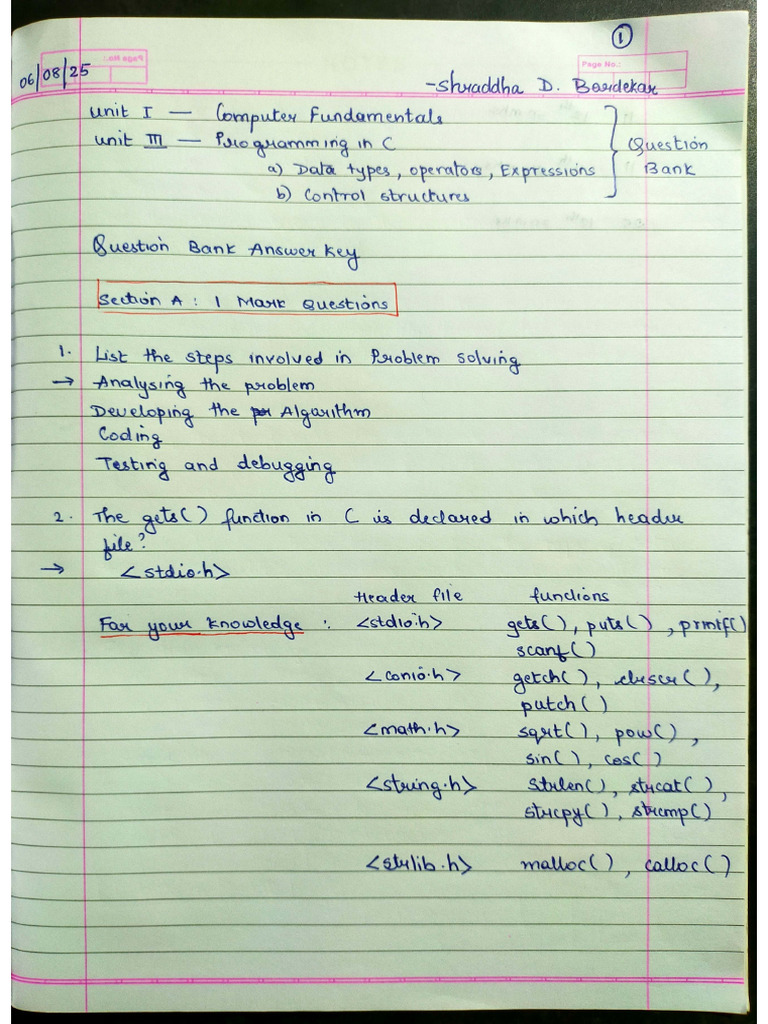 ①
Page No.:
Page No.:
06/08/25
-Shraddha D. Bordekar
Unit I — Computer Fundamentals
Unit III — Programming in C
a) Data types, operators, Expressions
b) Control structures
} Question Bank
Question Bank Answer Key
Section A : 1 Mark Questions
1. List the steps involved in Problem solving
→ Analysing the problem
Developing the Algorithm
Coding
Testing and debugging
2. The gets() function in C is declared in which header
file?
→ <stdio.h>
Header file functions
For your knowledge : <stdio.h> gets(), puts(), printf()
scanf()
<conio.h> getch(), clrscr(),
putch()
<math.h> sqrt(), pow(),
sin(), cos()
<string.h> strlen(), strcat(),
strcpy(), strcmp()
<strlib.h> malloc(), calloc()